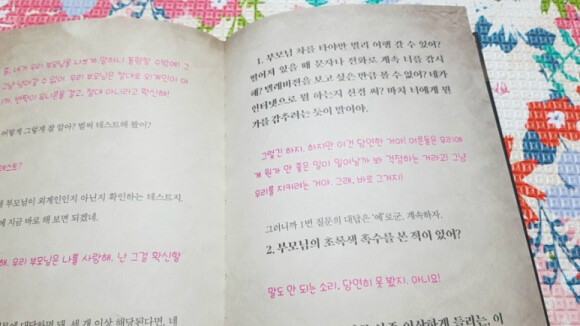 흠, 네가 우리 부모님을 나쁘게 말하니 불쾌할 수밖에! 그
냥 넘어갈 수 없어. 우리 부모님은 절대로 외계인이 아
니야. 반짝이 유니콘을 걸고, 절대 아니라고 확신해!
어떻게 그렇게 잘 알아? 벌써 테스트해 봤어?
테스트?
부모님이 외계인인지 아닌지 확인하는 테스트지.
지금 바로 해 보면 되겠네.
해. 우리 부모님은 나를 사랑해. 난 그걸 확신함
대답하면 돼. 세 개 이상 해당된다면, 네
1. 부모님 차를 타야만 멀리 여행 갈 수 있어?
떨어져 있을 때 문자나 전화로 계속 너를 감시
해? 텔레비전을 보고 싶은 만큼 볼 수 없어? 네가
인터넷으로 뭘 하는지 신경 써? 마치 너에게 뭔
가를 감추려는 듯이 말이야.
그렇긴 하지. 하지만 이건 당연한 거야! 어른들은 우리에
게 뭔가 안 좋은 일이 일어날까 봐 걱정하는 거라고! 그냥
우리를 지키려는 거야. 그래, 바로 그거지!
그러니까 1번 질문의 대답은 '예'로군. 계속하자.
2. 부모님의 초록색 촉수를 본 적이 있어?
말도 안 되는 소리. 당연히 못 봤지. 아니요!
이상하게 들리는, 이